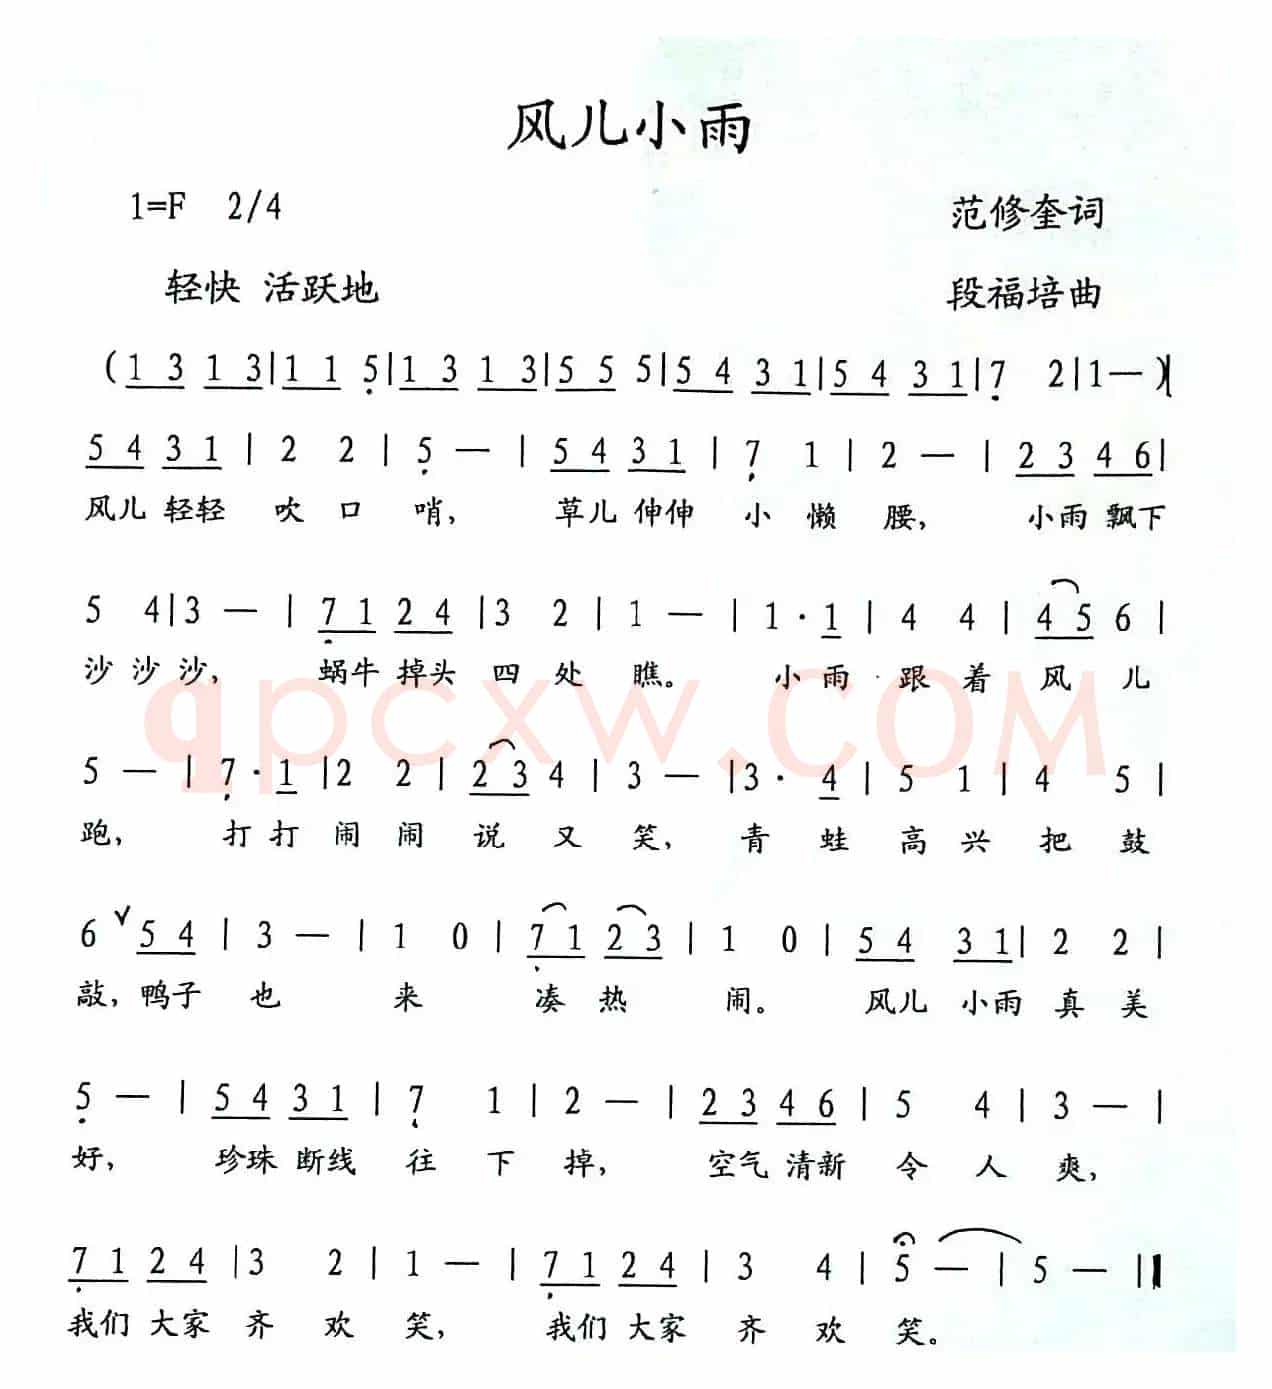 风儿小雨
1=F 2/4 范修奎词
轻快 活跃地 段福培曲
(1 3 1 3|1 1 5|1 3 1 3|5 5 5|5 4 3 1|5 4 3 1|7 2|1—)|
5 4 3 1 | 2 2 | 5 — | 5 4 3 1 | 7 1 | 2 — | 2 3 4 6|
风儿 轻轻 吹 口 哨, 草儿 伸伸 小 懒 腰, 小雨 飘下
5 4|3 — | 7 1 2 4 |3 2 | 1 — | 1 · 1 | 4 4 | 4 5 6 |
沙 沙 沙, 蜗牛 掉头 四 处 瞧。 小 雨 跟 着 风 儿
5 — | 7 · 1 |2 2 | 2 3 4 | 3 — |3 · 4 | 5 1 | 4 5 |
跑, 打 打 闹 闹 说 又 笑, 青 蛙 高 兴 把 鼓
6 ∨ 5 4 | 3 — | 1 0 | 7 1 2 3 | 1 0 | 5 4 3 1| 2 2 |
敲, 鸭子 也 来 凑 热 闹。 风儿 小雨 真 美
5 — | 5 4 3 1 | 7 1 | 2 — | 2 3 4 6 | 5 4 | 3 — |
好, 珍珠 断线 往 下 掉, 空气 清新 令 人 爽,
7 1 2 4 |3 2 | 1 — | 7 1 2 4 | 3 4 | 5 — | 5 — ‖
我们 大家 齐 欢 笑, 我们 大家 齐 欢 笑。
qpcxw.COM